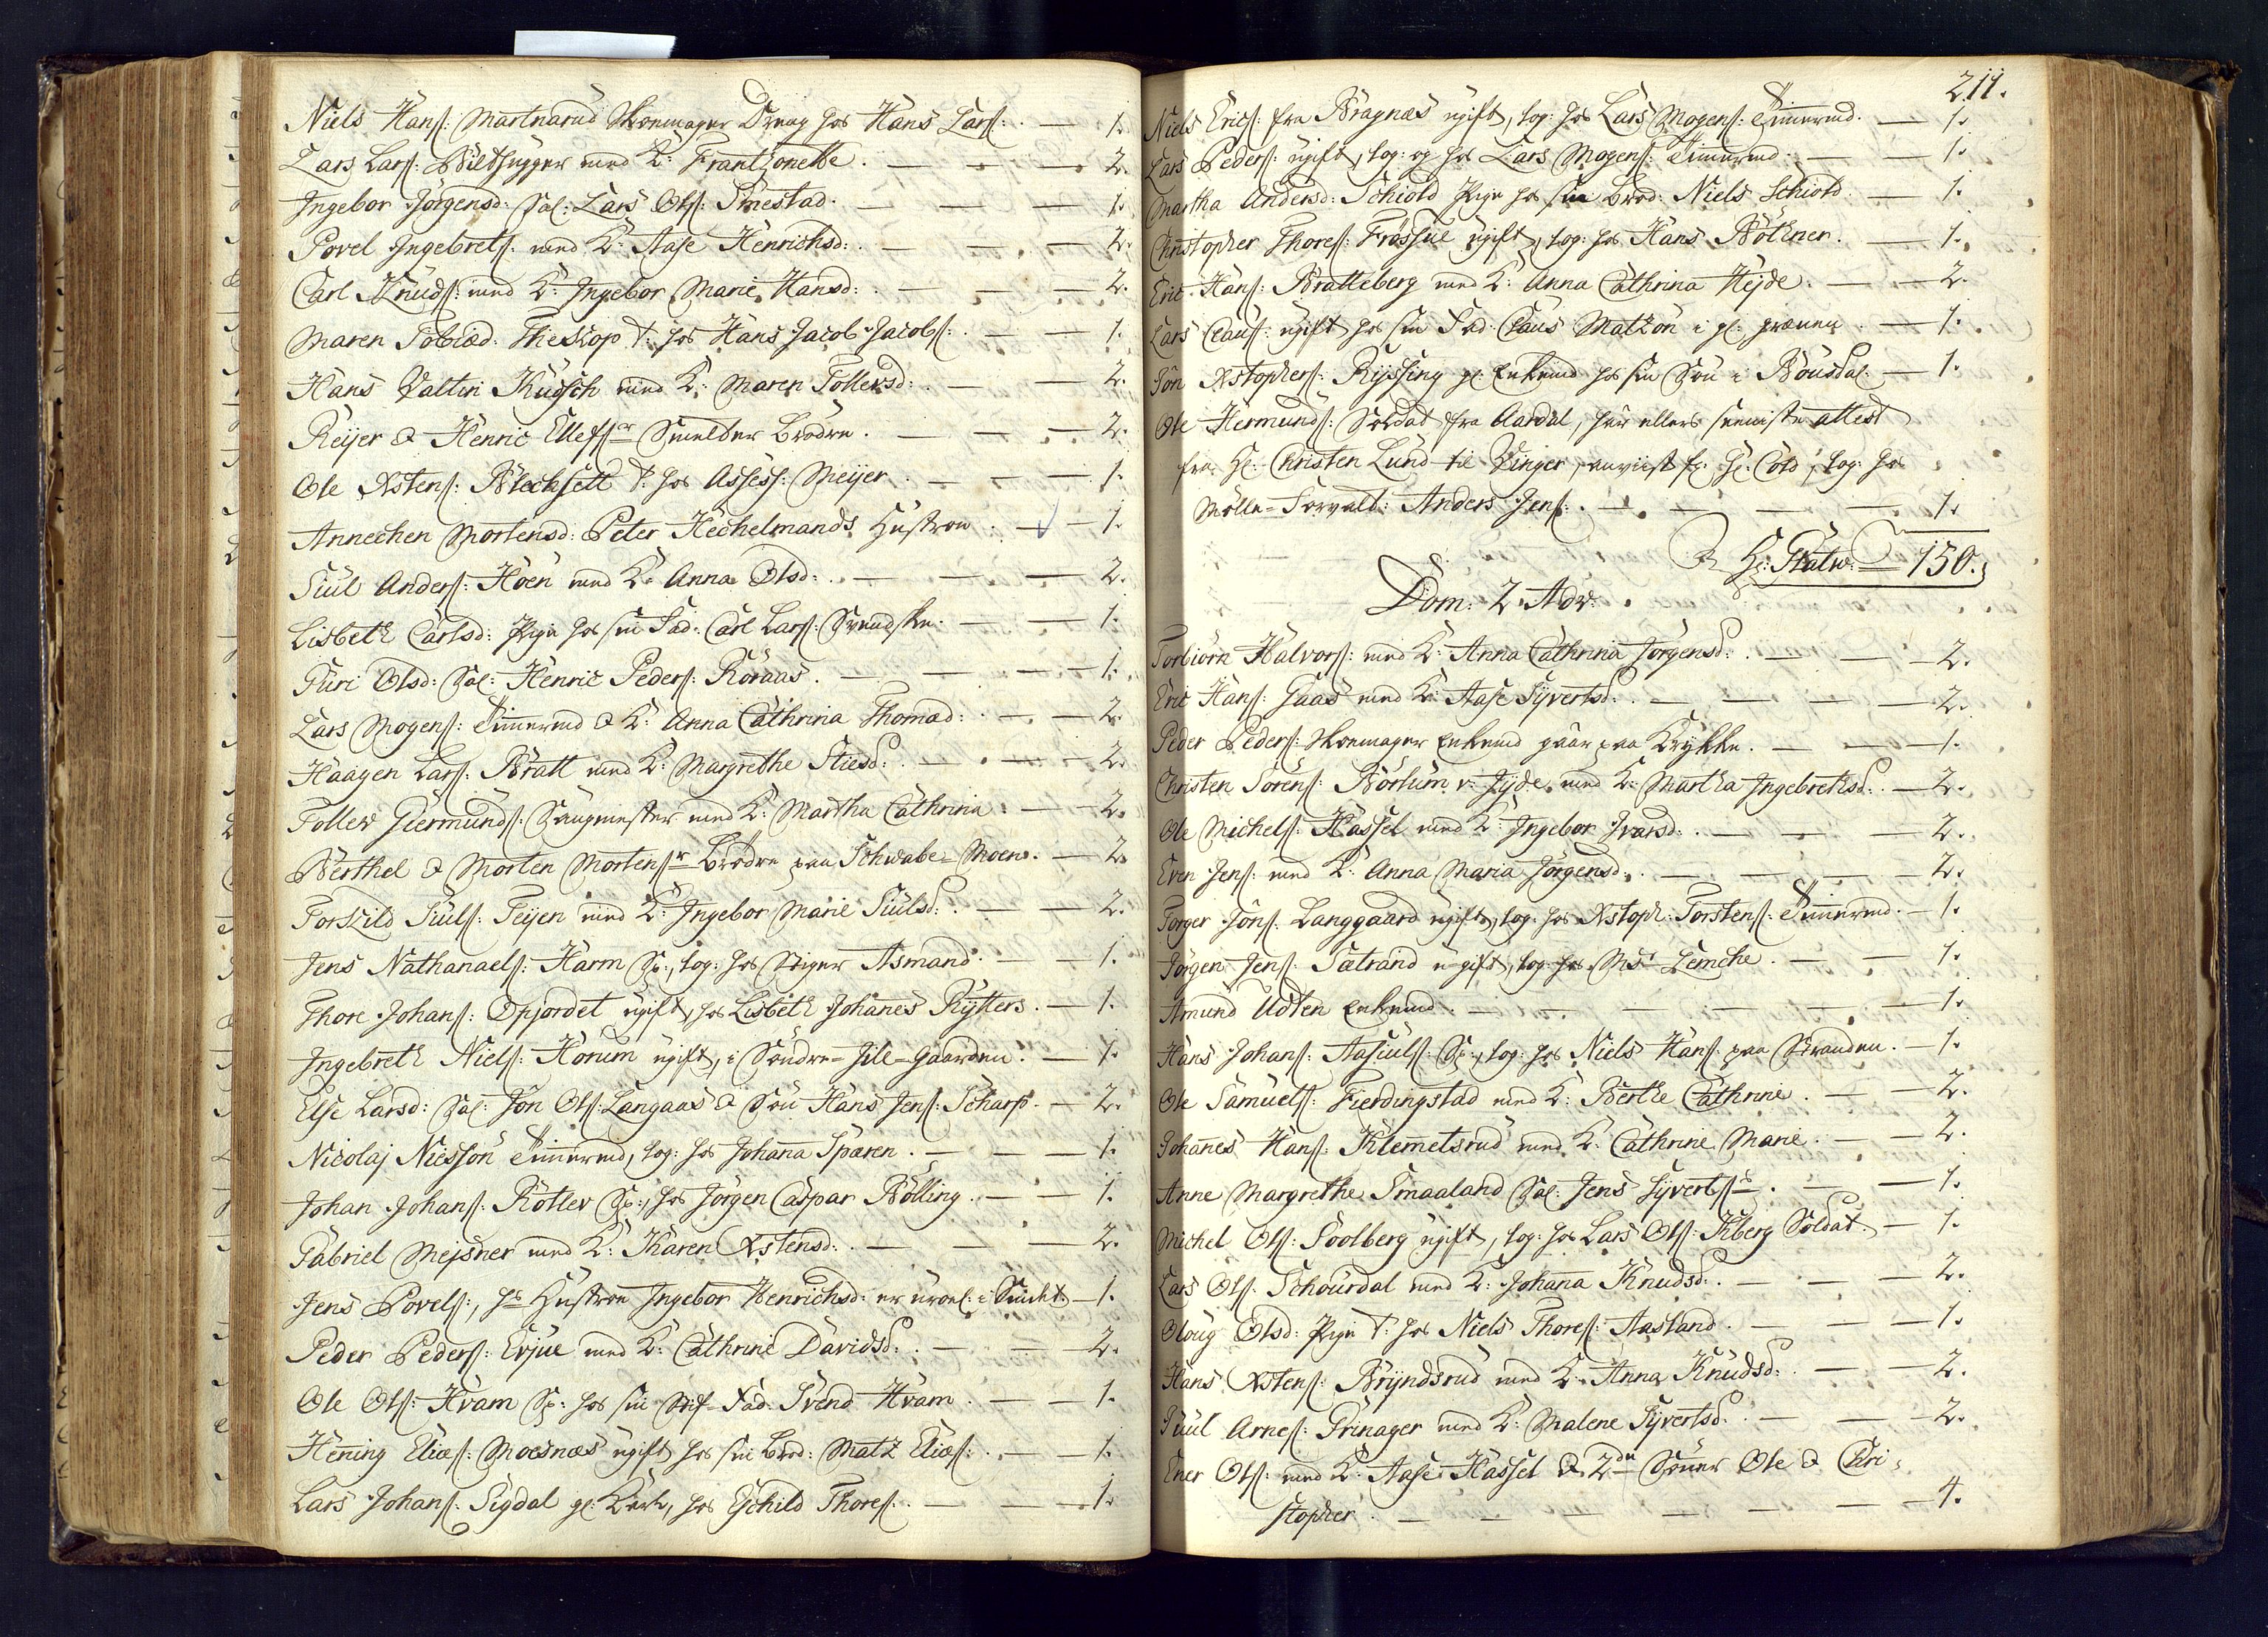 Niels Hans: Martnarud Skoemager Dreng hos Hans Lars: — 1.
Lars Lars: Bildhugger med K: Frantzonette. — 2.
Ingebor Jörgensd: Sal: Lars Ols: Smestad. — 1.
Povel Ingebrets: med K: Aase Henrichsd: — 2.
Carl Knuds: med K: Ingebor Marie Hansd: — 2.
Maren Tobiæd: Thieskop t: hos Hans Jacob Jacobs: — 1.
Hans Valtin Kugsch med K: Maren Tollevsd: — 2.
Reijer & Henric Ellefsr Smelter Brødre. — 2.
Ole Xstens: Blechsett t: hos Assess: Meijer — 1.
Annechen Mortensd: Peter Hechelmands Hustroe — 1.
Juul Anders: Hoen med K: Anna Olsd: — 2.
Lisbeth Carlsd: Pige hos sin Fad: Carl Lars: Svendske. — 1.
Guri Olsd: Sal: Henric Peders: Röraas. — 1.
Lars Mogens: Timmermd & K: Anna Cathrina Thomæd: — 2.
Haagen Lars: Bratt med K: Margrethe Stiesd: — 2.
Tollev Giermunds: Saugmester med K: Martha Cathrina — 2.
Berthel & Morten Mortensr Brødre paa Schwabe-Moen. — 2.
Torkild Juuls: Teijen med K: Ingebor Marie Juulsd: — 2.
Jens Nathanaels: Harm Sp:, log: hos Stiger Asmand: — 1.
Thore Johans: Opjordet ugift, hos Lisbeth Johannes Rytters. — 1.
Ingebreth Niels: Horum ugift, i Søndre-Hile-Gaarden. — 1.
Else Larsd: Sal: Jon Ols: Langaas & Søn Hans Jens: Scharp. — 2.
Nicolaj Nicsson Timmermd, log: hos Johanna Sparen. — 1.
Johan Johans: Rotlev Sp:, hos Jörgen Caspar Bölling. — 1.
Gabriel Mejsner med K: Karen Xstensd: — 2.
Jens Povels:, hs Hustroe Ingebor Henrichsd: er uroel: i Sindet — 1.
Peder Peders: Evjue med K: Cathrine Davidsd: — 2.
Ole Ols: Hvam Sp: hos sin Stif-Fad: Svend Hvam. — 1.
Henning Eliæs: Moesnæs ugift hos sin Brod: Matz Eliæs: — 1.
Lars Johans: Sigdal gl: Karl, hos Eschild Thores: — 1.
211.
Niels Erics: fra Bragnæs ugift, log: hos Lars Mogens: Timmermd. — 1.
Lars Peders: ugift, log: og hos Lars Mogens: Timmermd: — 1.
Martha Andersd: Schiold Pige hos sin Brod: Niels Schiold: — 1.
Christopher Thores: Frössue ugift, log: hos Hans Bölkner. — 1.
Eric Hans: Bratteberg med K: Anna Cathrina Heyde. — 2.
Lars Claus: ugift hos sin Fad: Claus Matzon i gl: — 1.
Jon Xstophers: Ryssing gl: Enkemd hos sin Søn i Bousdal — 1.
Ole Hermunds: Soldat fra Aardal, har ellers seeniste attest
fra Hr: Christen Lund til Vinger, anviist fr: Hr: Cold, log: hos
Mølle-Forvalt: Anders Jens: — 1.
Hr: — 150.
Dom: 2. Adv:
Torbiörn Halvors: med K: Anna Cathrina Jörgensd: — 2.
Eric Hans: Gaas med K: Aase Syvertsd: — 2.
Peder Peders: Skoemager Enkemd gaar paa Krykke. — 1.
Christen Sörens: Börlum v: Jyde, med K: Martha Ingebrethsd: — 2.
Ole Michels: Hassel med K: Ingebor Ivarsd: — 2.
Even Jens: med K: Anna Maria Jörgensd: — 2.
Torger Jons: Langgaard ugift, log: hos Xstoph: Torstens: Timmermd. — 1.
Jörgen Jens: Sætrand ugift, log hos Msr Lemche. — 1.
Amund Udten Enkemd. — 1.
Hans Johans: Aasiuls: Sp:, log: hos Niels Hans: paa Stranden. — 1.
Ole Samuels: Fierdingstad med K: Berthe Cathrine. — 2.
Johannes Hans: Klemetsrud med K: Cathrine Marie. — 2.
Anne Margrethe Smaaland Sal: Jens Syverts: — 1.
Michel Ols: Soolberg ugift, log: hos Lars Ols: Kiberg Soldat. — 1.
Lars Ols: Schourdal med K: Johanna Knudsd: — 2.
Oloug Olsd: Pige t: hos Niels Thores: Aasland. — 1.
Hans Xstens: Bryndsrud med K: Anna Knudsd: — 2.
Juul Arnes: Grinager med K: Malene Syvertsd: — 2.
Ener Ols: med K: Aase Hassel & 2de Sønner Ole & Chri-
stopher. — 4.